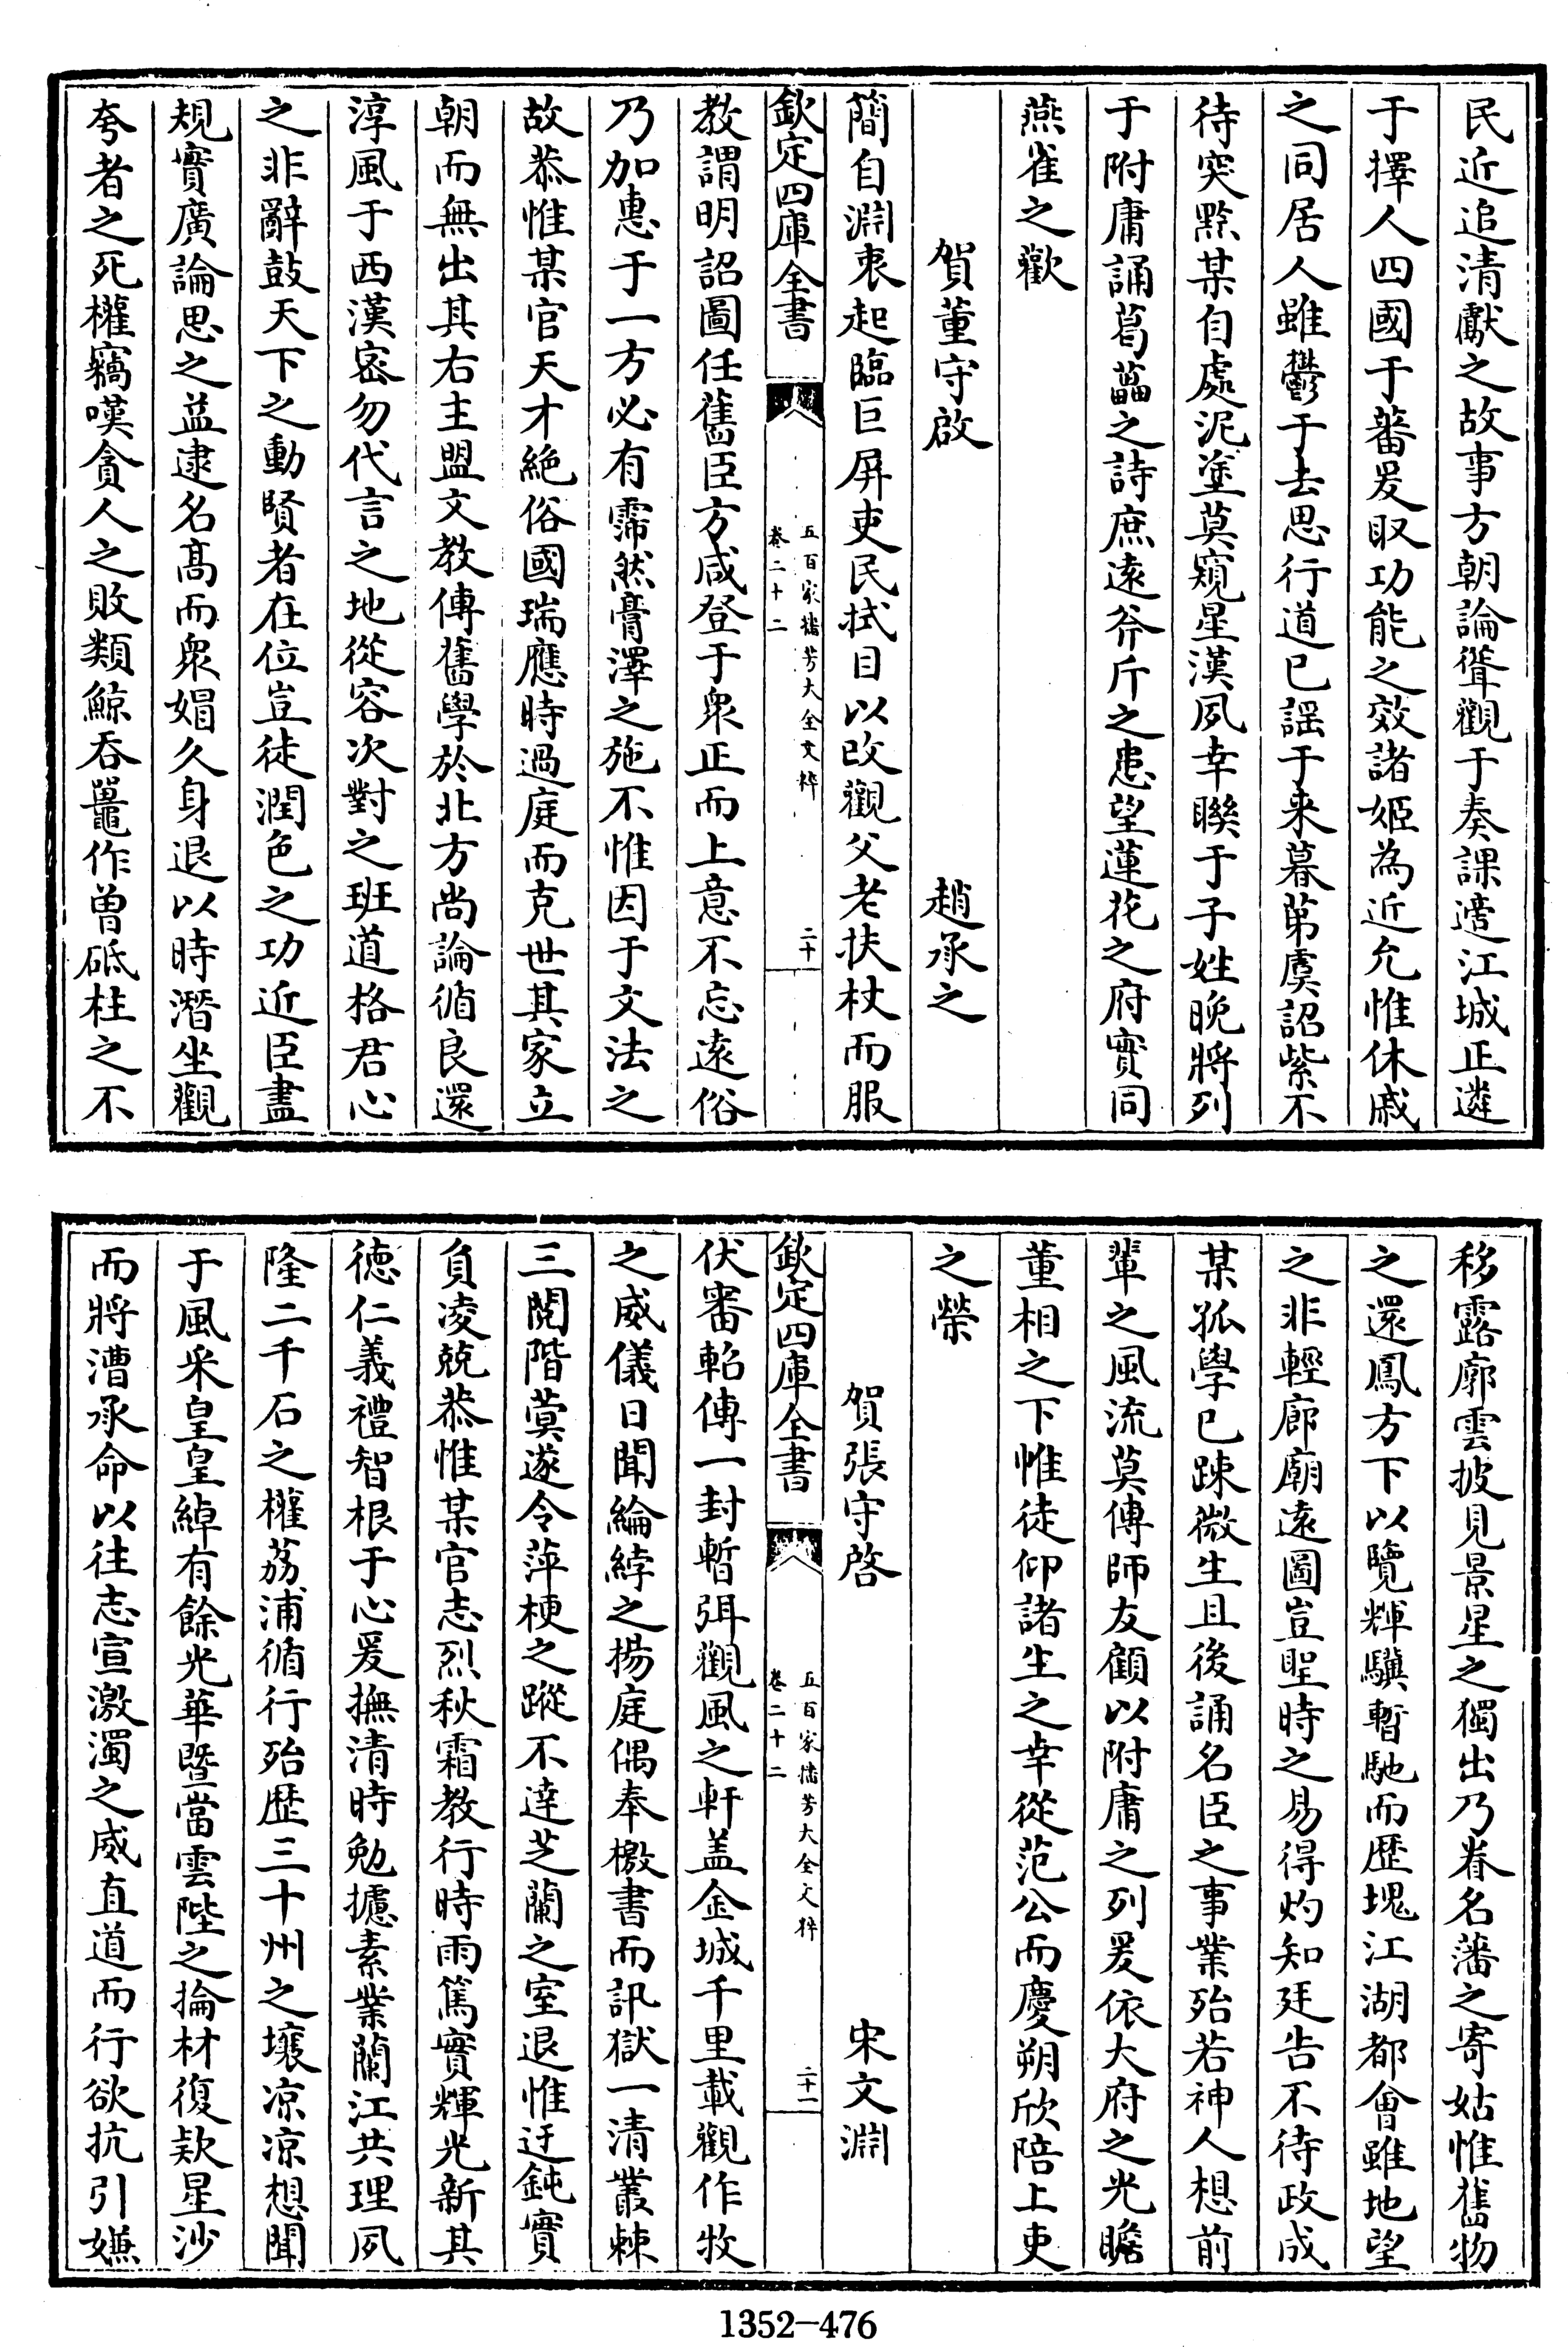 民近追清獻之故事方朝論聳觀于奏課適江城正遴
于擇人四國于蕃爰取功能之效諸姬為近允惟休戚
之同居人雖鬱于去思行道已謡于来暮第虞詔紫不
待突黔某自處泥塗莫窺星漢夙幸聯于子姓晚將列
于附庸誦葛藟之詩庶遠斧斤之患望蓮花之府實同
燕雀之歡
賀董守啟 趙承之
簡自淵衷起臨巨屏吏民拭目以改觀父老扶杖而服
欽定四庫全書 五百家播芳大全文粹 卷二十二 二十
教謂明詔圖任舊臣方咸登于衆正而上意不忘逺俗
乃加惠于一方必有霈然膏澤之施不惟因于文法之
故恭惟某官天才絶俗國瑞應時過庭而克世其家立
朝而無出其右主盟文教傳舊學於北方尚論循良還
淳風于西漢宻勿代言之地從容次對之班道格君心
之非辭鼓天下之動賢者在位豈徒潤色之功近臣盡
規實廣論思之益逮名髙而衆媢久身退以時潛坐觀
夸者之死權竊嘆貪人之敗類鯨吞鼉作曽砥柱之不
移露廓雲披見景星之獨出乃眷名藩之寄姑惟舊物
之還鳳方下以覽輝驥暫馳而歴塊江湖都會雖地望
之非輕廊廟遠圖豈聖時之易得灼知廷告不待政成
某孤學已踈微生且後誦名臣之事業殆若神人想前
輩之風流莫傳師友顧以附庸之列爰依大府之光瞻
董相之下惟徒仰諸生之幸從范公而慶朔欣陪上吏
之榮
賀張守啓 宋文淵
欽定四庫全書 五百家播芳大全文粹 卷二十二 二十一
伏審軺傳一封暫弭觀風之軒盖金城千里載觀作牧
之威儀日聞綸綍之揚庭偶奉檄書而訊獄一清叢棘
三閲階蓂遂令萍梗之蹤不逹芝蘭之室退惟迂鈍實
負凌兢恭惟某官志烈秋霜教行時雨篤實輝光新其
徳仁義禮智根于心爰撫清時勉攄素業蘭江共理夙
隆二千石之權荔浦循行殆歴三十州之壤凉凉想聞
于風采皇皇綽有餘光華暨當雲陛之掄材復欵星沙
而將漕承命以往志宣激濁之威直道而行欲抗引嫌
1352—476